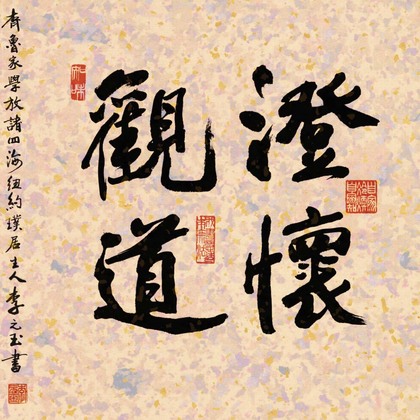 澄懷
觀道
齊魯家學放諸四海紐約璞居主人李元玉書